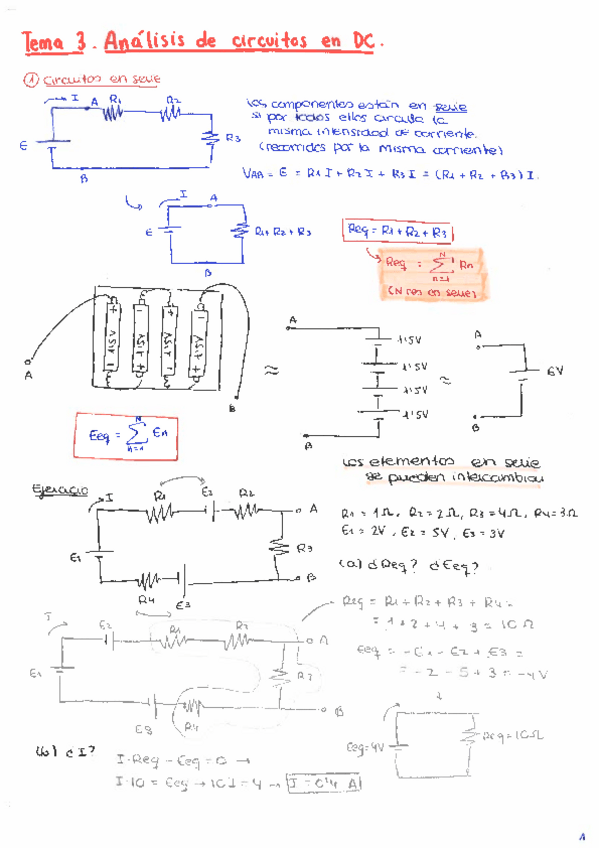 Tema 3. Análisis de circuitos en DC.
① Circuitos en serie
I A R1 R2
E R3
B
Los componentes están en serie
si por todos ellos circula la
misma intensidad de corriente.
(recorridos por la misma corriente)
VAB = E = R1 I + R2 I + R3 I = (R1 + R2 + R3) I.
I A
E R1 + R2 + R3
B
Req = R1 + R2 + R3
Req = N Σ n=1 Rn
(N res en serie)
+ 1'5V -
- 1'5V +
+ 1'5V -
- 1'5V +
A
B
≈
A
1'5V
1'5V
1'5V
1'5V
B
≈
A
6V
B
Eeq = N Σ n=1 En
Los elementos en serie
se pueden intercambiar
Ejercicio
I R1 E2 R2 A
E1 R3
R4 E3 B
R1 = 1Ω, R2 = 2Ω, R3 = 4Ω, R4 = 3Ω
E1 = 2V, E2 = 5V, E3 = 3V
(a) ¿Req? ¿Eeq?
I E2 R1 R2 A
E1 R3
E3 R4 B
Req = R1 + R2 + R3 + R4 =
= 1 + 2 + 4 + 3 = 10Ω
Eeq = -E1 - E2 + E3 =
= -2 - 5 + 3 = -4V
Eeq = 4V Req = 10Ω
(b) ¿I?
I·Req - Eeq = 0 →
I·10 = Eeq → 10I = 4 → I = 0'4 A